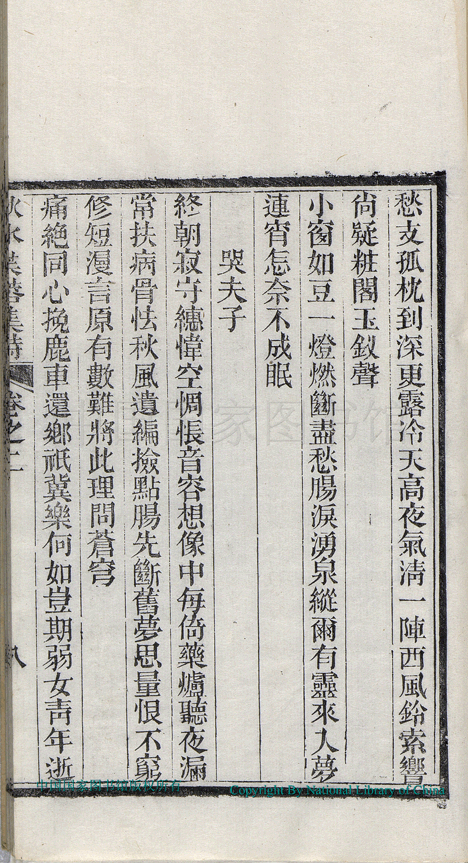 愁支孤枕到深更露冷天高夜氣淸一陣西風鈴索響
尙疑粧閣玉釵聲
小窗如豆一燈燃斷盡愁腸淚湧泉縱爾有靈來入夢
連宵怎奈不成眠
哭夫子
終朝寂守繐幃空惆悵音容想像中每倚藥爐聽夜漏
常扶病骨怯秋風遺編撿點腸先斷舊夢思量恨不窮
修短漫言原有數難將此理問蒼穹
痛絕同心挽鹿車還鄉祇冀樂何如豈期弱女靑年逝
卷之二
八
中国国家图书馆版权所有
Copyright By National Library of China